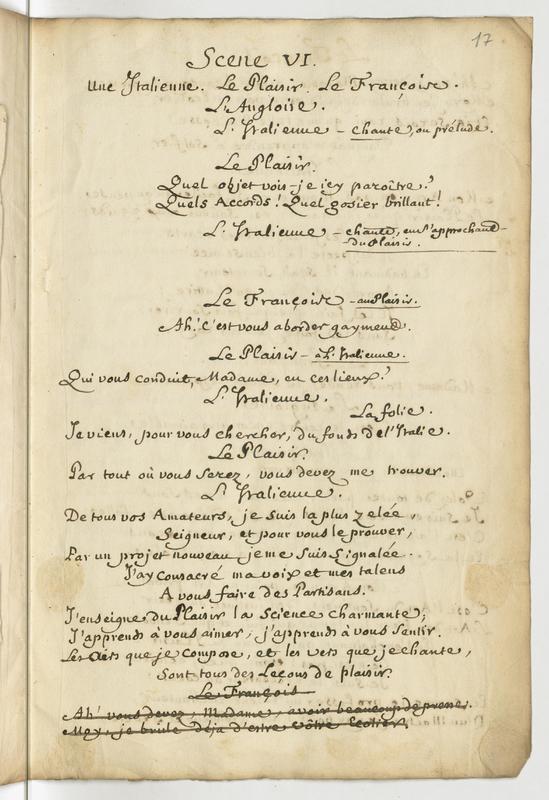 17
Scene VI.
Une Italienne. Le Plaisir. Le Françoise.
L'Angloise.
L'Italienne – chante, ou prélude.
Le Plaisir.
Quel objet vois-je icy paroître?
Quels Accords! Quel gosier brillant!
L'Italienne – chante, en s'approchant
du Plaisir.
Le Françoise – au Plaisir.
Ah! C'est vous aborder gayment.
Le Plaisir – à L'Italienne.
Qui vous conduit, Madame, en ces lieux?
L'Italienne.
La folie.
Je viens, pour vous chercher, du fonds de l'Italie.
Le Plaisir.
Par tout où vous serez, vous devez me trouver.
L'Italienne.
De tous vos Amateurs, je suis la plus zelée,
Seigneur, et pour vous le prouver,
Par un projet nouveau je me suis signalée.
J'ay consacré ma voix et mes talens
A vous faire des Partisans.
J'enseigne du Plaisir la Science charmante;
J'apprends à vous aimer, j'apprends à vous sentir.
Les Airs que je compose, et les vers que je chante,
Sont tous des Leçons de plaisir.
Le François
Ah! vous devez, Madame, avoir beaucoup de presse.
Moy, je brule déja d'estre vôtre Ecolier.